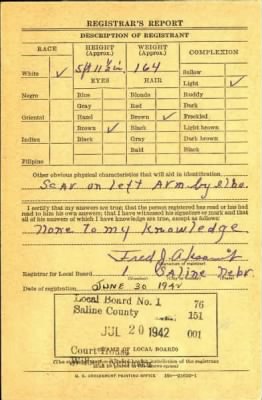 REGISTRAR'S REPORT
DESCRIPTION OF REGISTRANT
RACE HEIGHT (Approx.) WEIGHT (Approx.) COMPLEXION
White ✓ 5ft 11½in. 164 Sallow
EYES HAIR Light ✓
Negro Blue Blonde Ruddy
Gray Red Dark
Oriental Hazel Brown ✓ Freckled
Brown ✓ Black Light brown
Indian Black Gray Dark brown
Bald Black
Filipino
Other obvious physical characteristics that will aid in identification
Scar on left Arm by elbo.
I certify that my answers are true; that the person registered has read or has had read to him his own answers; that I have witnessed his signature or mark and that all of his answers of which I have knowledge are true, except as follows:
None to my knowledge
Fred J.
(Signature of registrar)
Registrar for Local Board 1 Saline Nebr.
Date of registration JUNE 30 1942
Local Board No. 1 76
Saline County 151
JUL 20 1942 001
Court House
U. S. GOVERNMENT PRINTING OFFICE